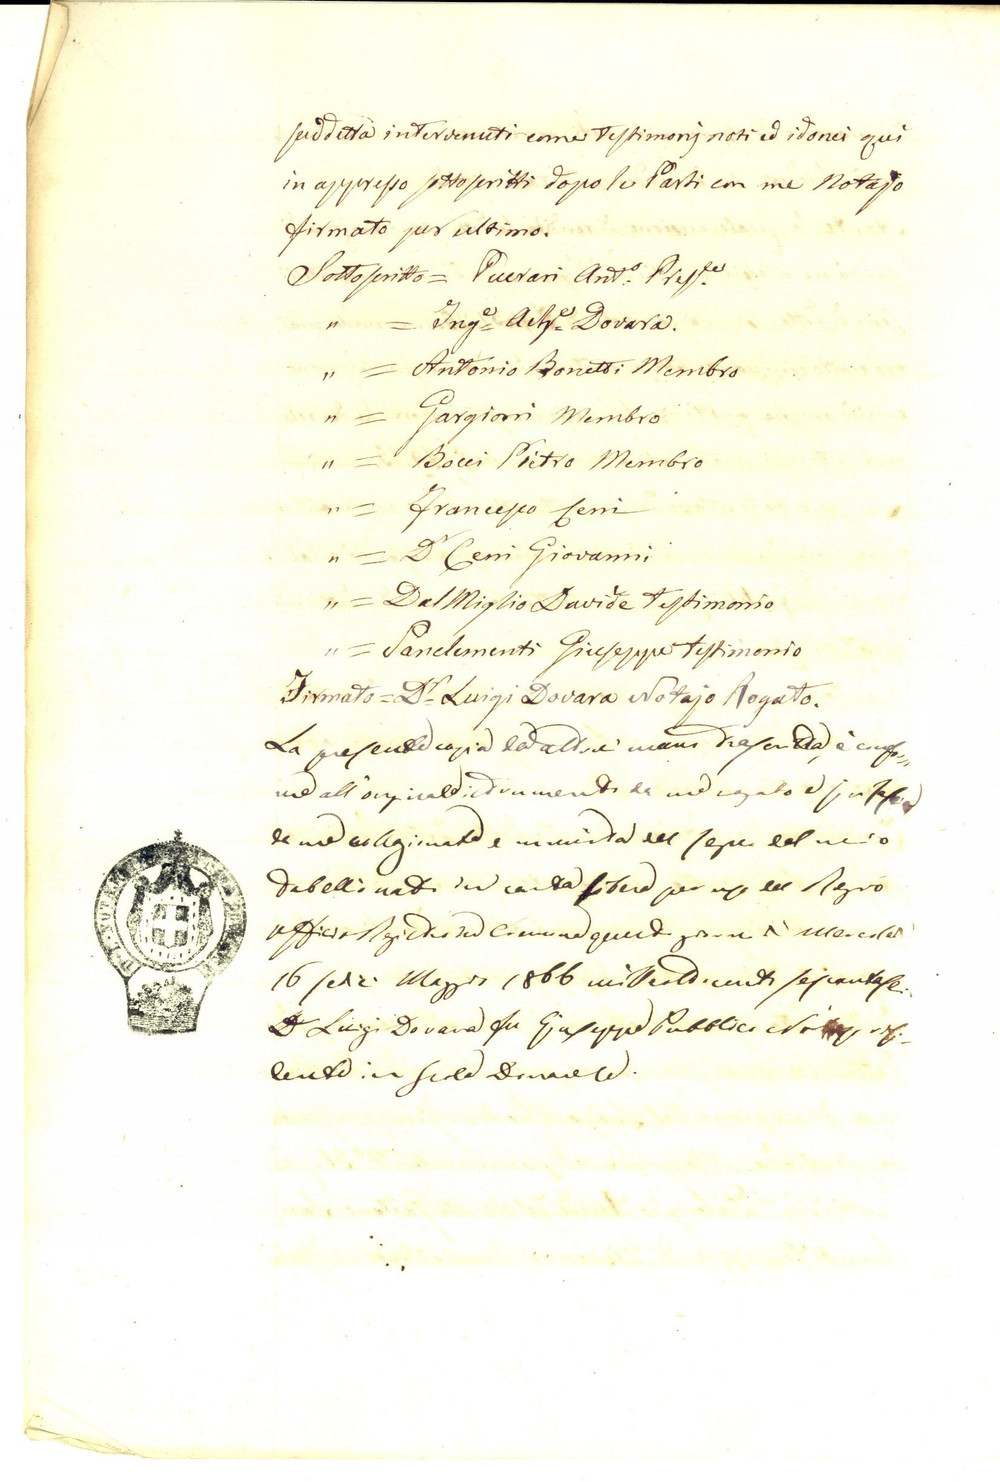 suddetta intervenuti come Testimonj noti ed idonei qui
in appresso sottoscritti dopo le Parti con me Notajo
firmato per ultimo.
Sottoscritto = Puerari Ant.o Pres.te
" = Ing.e Dovara.
" = Antonio Bonetti Membro
" = Gargioni Membro
" = Bocci Pietro Membro
" = Francesco Ceni
" = D.r Ceni Giovanni
" = Dal Miglio Davide Testimonio
" = Panclementi Giuseppe Testimonio
Firmato = D.r Luigi Dovara Notajo Rogato.
La presente copia ad altrui mano trascritta, è confor=
me all'originale istrumento da me rogato e
da me collazionata e munita del segno del mio
Tabellionato in carta libera per uso del Regio
Ufficio Registro in Cremona questo giorno di Mercoledì
16 sedici Maggio 1866 milleottocento sessantasei.
D.r Luigi Dovara fu Giuseppe Pubblico Notajo resi-
dente in